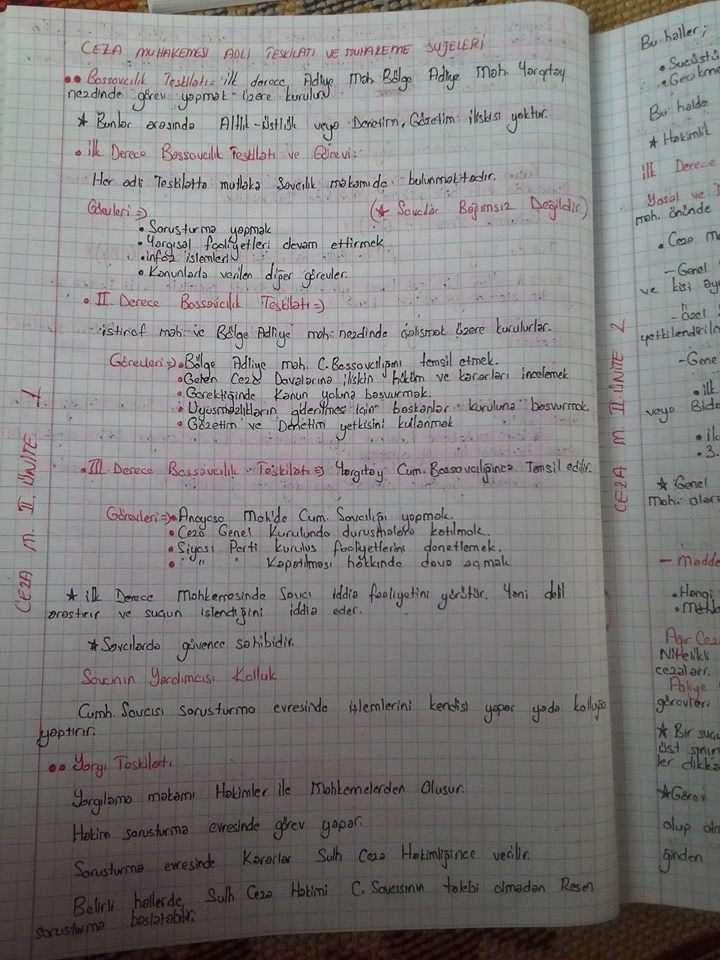 CEZA MUHAKEMESİ ADLİ TEŞKİLATI VE MUHAKEME SUJELERİ
•• Bassavcılık Teskilatı: ilk derece Adliye Mah. Bölge Adliye Mah. Yargıtay
nezdinde görev yapmak üzere kurulur.
★ Bunlar arasında Altlık-üstlük veya Denetim, Gözetim iliskisi yoktur.
• ilk Derece Bassavcılık Teskilatı ve Görevi:
Her adli Teskilatta mutlaka Savcılık makamıda bulunmaktadır.
Görevleri => (★ Savcılar Bağımsız Değildir)
• Sorusturma yapmak
• Yargısal faaliyetleri devam ettirmek
• infaz islemleri
• Kanunlarla verilen diğer görevler.
• II Derece Bassavcılık Teskilatı =>
istinaf mah. ve Bölge Adliye mah. nezdinde çalısmak üzere kurulurlar.
Görevleri => • Bölge Adliye mah. C. Bassavcılığını temsil etmek.
• Gelen Ceza Davalarına iliskin hüküm ve kararları incelemek
• Gerektiğinde Kanun yoluna basvurmak.
• Uyusmazlıkların giderilmesi için baskanlar kuruluna basvurmak.
• Gözetim ve Denetim yetkisini kullanmak
• III Derece Bassavcılık Teskilatı => Yargıtay Cum. Bassavcılığınca Temsil edilir.
Görevleri => • Anayasa Mah'de Cum. Savcılığı yapmak.
• Ceza Genel Kurulunda durusmalara katılmak.
• Siyasi Parti kurulus faaliyetlerini denetlemek.
• " " Kapatılması hakkında dava açmak
★ ilk Derece Mahkemesinde Savcı iddia faaliyetini yürütür. Yani delil
arastırır ve suçun islendiğini iddia eder.
★ Savcılarda güvence sahibidir.
Savcının Yardımcısı Kolluk
Cumh. Savcısı sorusturma evresinde islemlerini kendisi yapar yada kolluğa
yaptırır.
•• Yargı Teskilatı
Yargılama makamı Hakimler ile Mahkemelerden Olusur.
Hakim sorusturma evresinde görev yapar.
Sorusturma evresinde Kararlar Sulh Ceza Hakimliğince verilir.
Belirli hallerde Sulh Ceza Hakimi C. Savcısının talebi olmadan Resen
sorusturma baslatabilir.
CEZA M. II. ÜNİTE 1
Bu haller;
• Suçüstü
• Gecikme
Bu halde
★ Hakimlik
ilk Derece
Yasal ve
mah. önünde
• Ceza M
- Genel
ve kisi
- Özel
yetkilendirile
- Gene
• ilk
veya
• 3.
★ Genel
Mah. olara
- Madde
• Hangi
Ağır Cez
Nitelikli
cezaları.
görevleri
★ Bir suç
üst sınırı
ler dikka
★ Görev
olup
ğinden
CEZA M. II. ÜNİTE 2